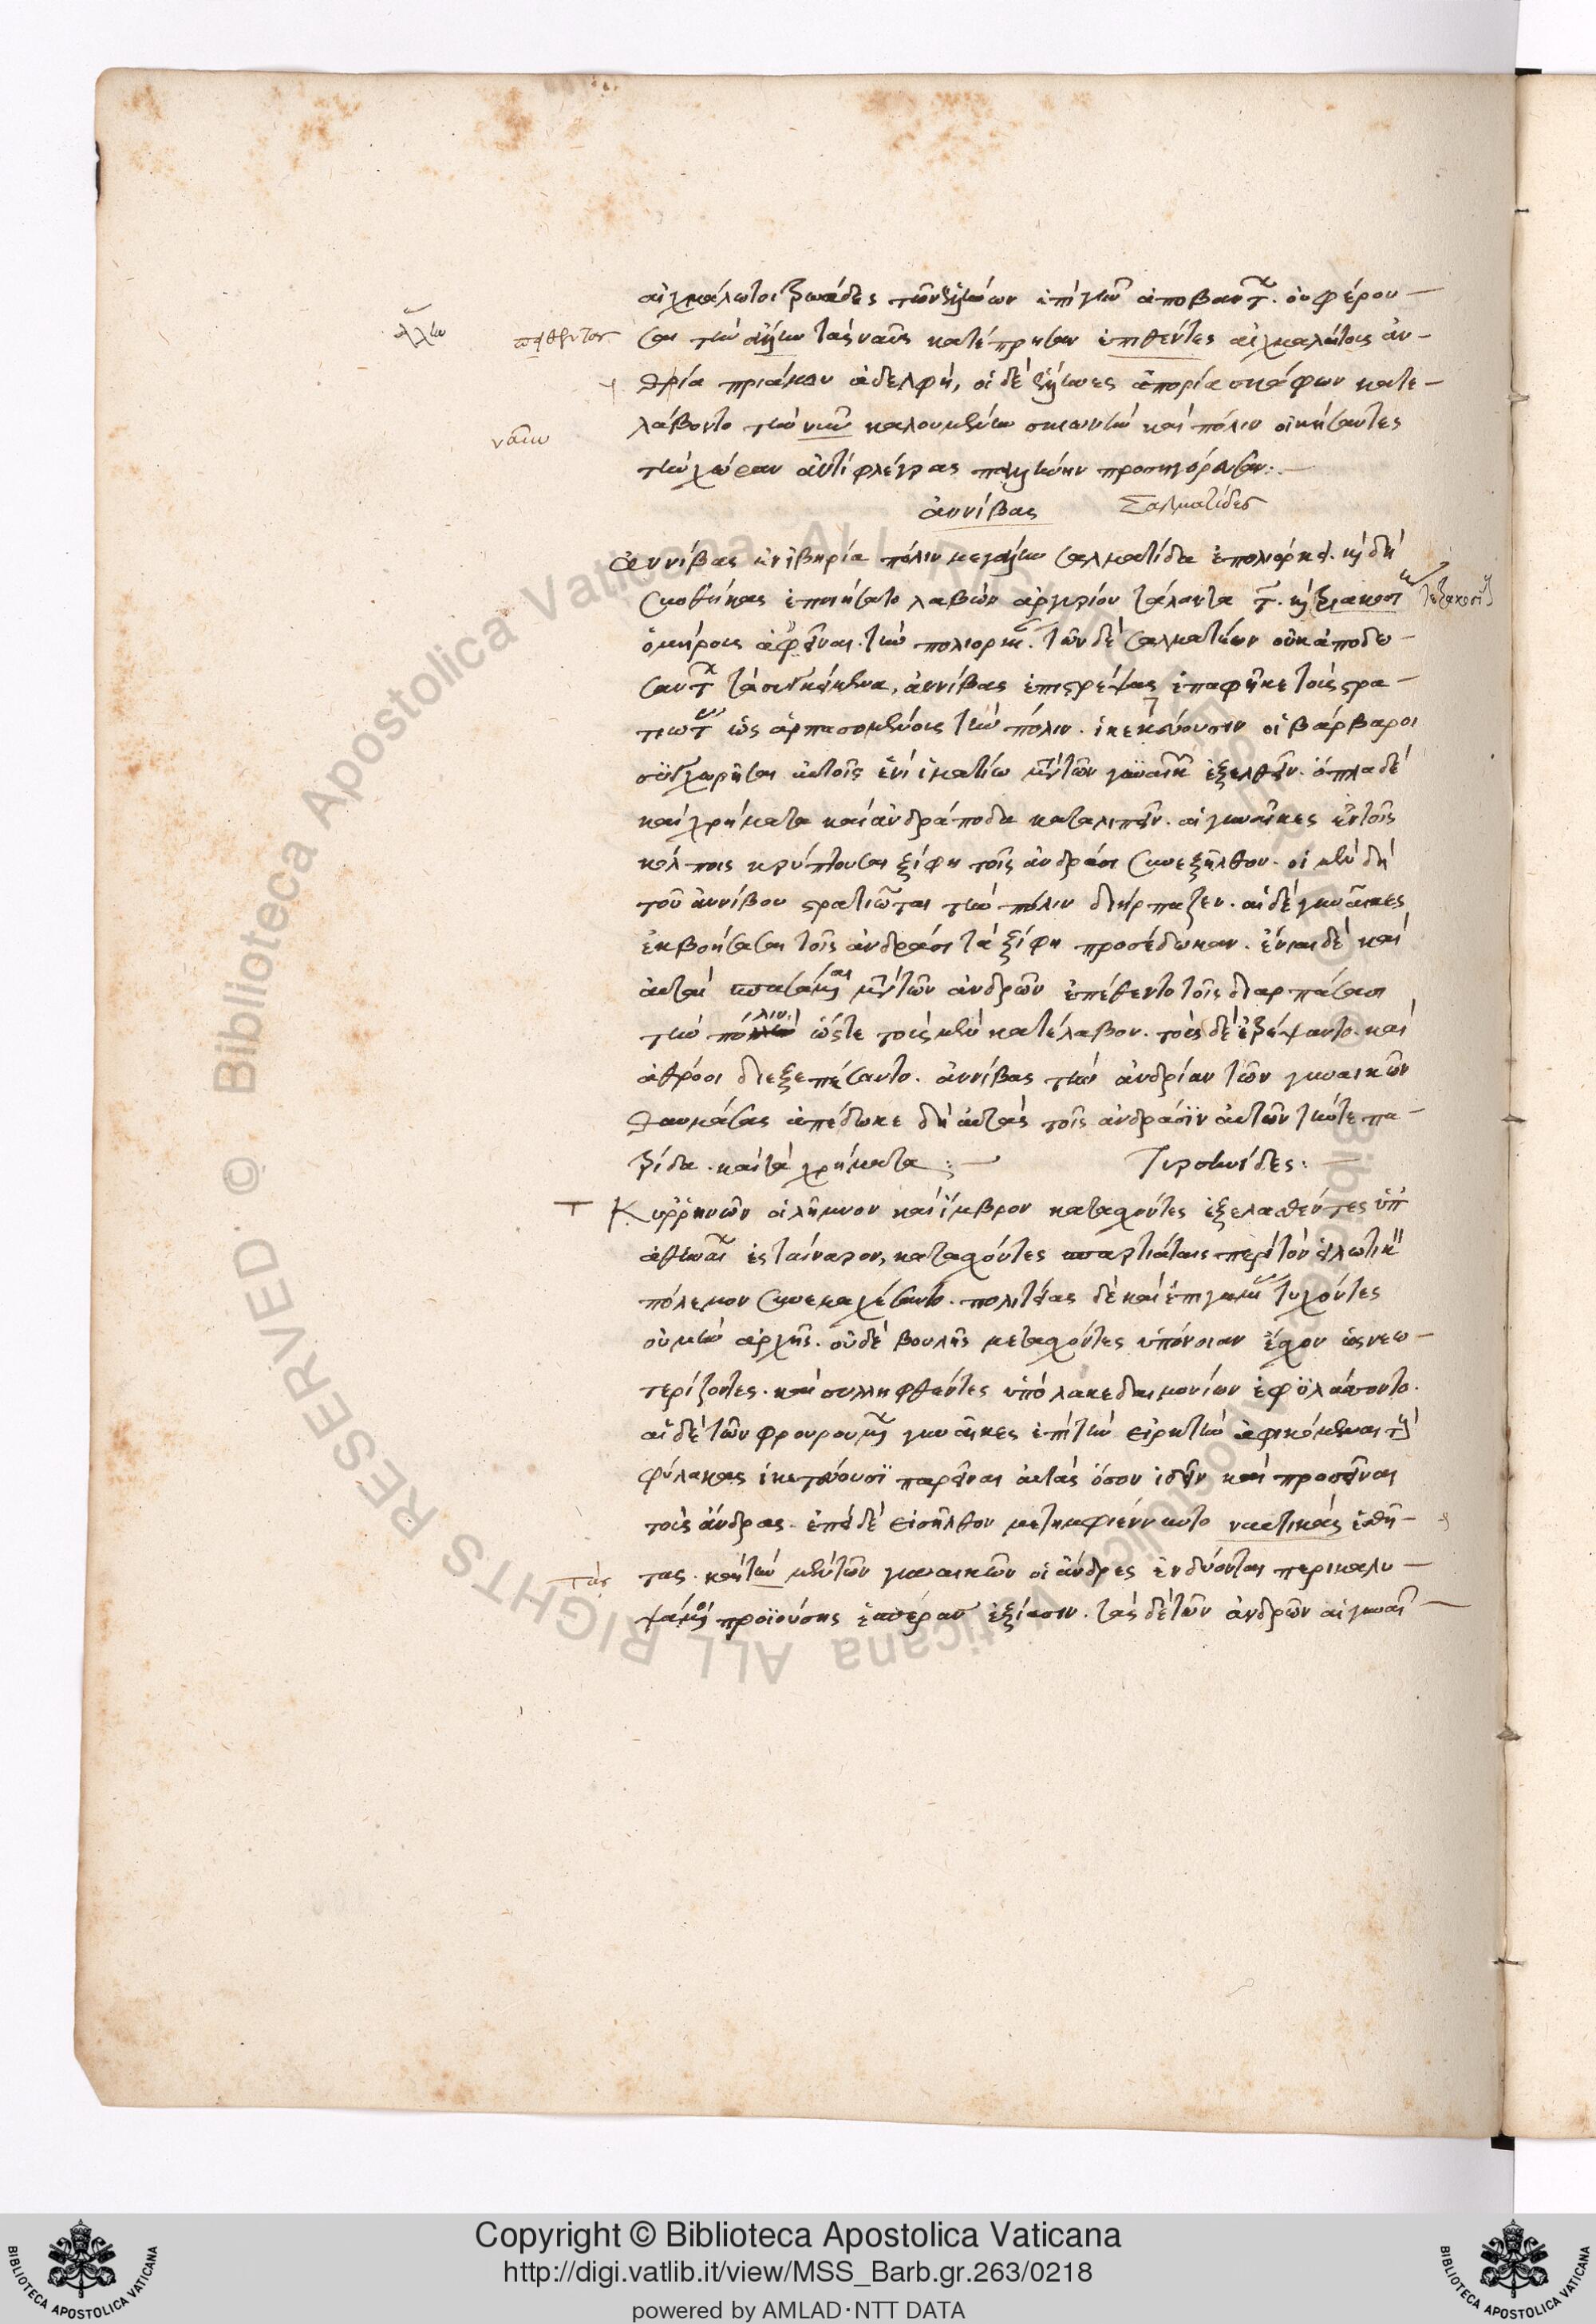 αἰχμάλωτοι τρωάδες τῶν ἑλλήνων ἐπὶ γῆν ἀποβάντ. οὐ φέρου-
σαι τὴν ἄλην τὰς ναῦς κατέπρησαν ἐπιθέντες αἰχμαλώτοις ἀν-
θρία πριάμου ἀδελφή, οἱ δὲ ἕλληνες ἀπορία σκάφων κατε-
λάβοντο τὴν νῦν καλουμένην σκιωνὴν καὶ πόλιν οἰκήσαντες
τὴν χώραν ἀντὶ φλέγρας παλλήνην προσηγόρευσαν:
ἀννίβας Σαλματίδες
ἀννίβας ἐν ἰβηρία πόλιν μεγάλην σαλματίδα ἐπολιόρκει. καὶ δὴ
συνθήκας ἐποιήσατο λαβὼν ἀργυρίου τάλαντα τ. καὶ τριακοσ
ὁμήρους ἀφεῖναι τὴν πολιορκ. τῶν δὲ σαλματίων οὐκ ἀποδω-
σαντ τὰ συγκείμενα, ἀννίβας ἐπιστρέψας ἐπαφῆκε τοὺς στρα-
τιωτ ὡς ἁρπασομένους τὴν πόλιν. ἱκετεύουσιν οἱ βάρβαροι
συγχωρῆσαι αὐτοῖς ἑνὶ ἱματίω μετὰ τῶν γυναικ ἐξελθεῖν. ὅπλα δὲ
καὶ χρήματα καὶ ἀνδράποδα καταλιπεῖν. αἱ γυναῖκες ἐν τοῖς
κόλποις κρύπτουσαι ξίφη τοῖς ἀνδράσι συνεξῆλθον. οἱ μὲν δὴ
τοῦ ἀννίβου στρατιῶται τὴν πόλιν διήρπαζεν. αἱ δὲ γυναῖκες
ἐκβοήσασαι τοῖς ἀνδράσι τὰ ξίφη προσέδωκαν. ἔνιαι δὲ καὶ
αὐταὶ σπασάμεναι μετὰ τῶν ἀνδρῶν ἐπέθεντο τοῖς διαρπάσασι
τὴν πόλιν ὥστε τοὺς μὲν κατέλαβον. τοὺς δὲ ἐτρέψαντο. καὶ
ἀθρόοι διεξεπέσαντο. ἀννίβας τὴν ἀνδρίαν τῶν γυναικῶν
θαυμάσας ἀπέδωκε δι' αὐτὰς τοῖς ἀνδράσιν αὐτῶν τήν τε πα-
τρίδα. καὶ τὰ χρήματα: Τυρρηνίδες:
Κυρρηνῶν οἱ λῆμνον καὶ ἴμβρον κατασχόντες ἐξελαθέντες ὑπ
ἀθηναι ἐς ταίναρον, κατασχόντες σπαρτιάταις περὶ τὸν εἱλωτικ
πόλεμον συνεμαχέσαντο. πολιτείας δὲ καὶ ἐπιγαμι τυχόντες
οὐ μὴν ἀρχῆς. οὐδὲ βουλῆς μετασχόντες ὑπόνοιαν ἔσχον ὡς νεω-
τερίζοντες. καὶ συλληφθέντες ὑπὸ λακεδαιμονίων ἐφυλάττοντο.
αἱ δὲ τῶν φρουρουμ γυναῖκες ἐπὶ τὴν εἱρκτὴν ἀφικόμεναι τοὺς
φύλακας ἱκετεύουσι παρεῖναι αὐτὰς ὅσον ἰδεῖν καὶ προσεῖναι
τοὺς ἄνδρας. ἐπεὶ δὲ εἰσῆλθον μετημφιέννυντο ναυτικὰς ἐσθῆ-
τας. καὶ τὴν μὲν τῶν γυναικῶν οἱ ἄνδρες ἐνδύονται περικαλυ-
ψάμενοι προϊούσης ἑσπέραν ἐξίασιν. τὰς δὲ τῶν ἀνδρῶν αἱ γυναῖ-
Copyright © Biblioteca Apostolica Vaticana
http://digi.vatlib.it/view/MSS_Barb.gr.263/0218
powered by AMLAD·NTT DATA